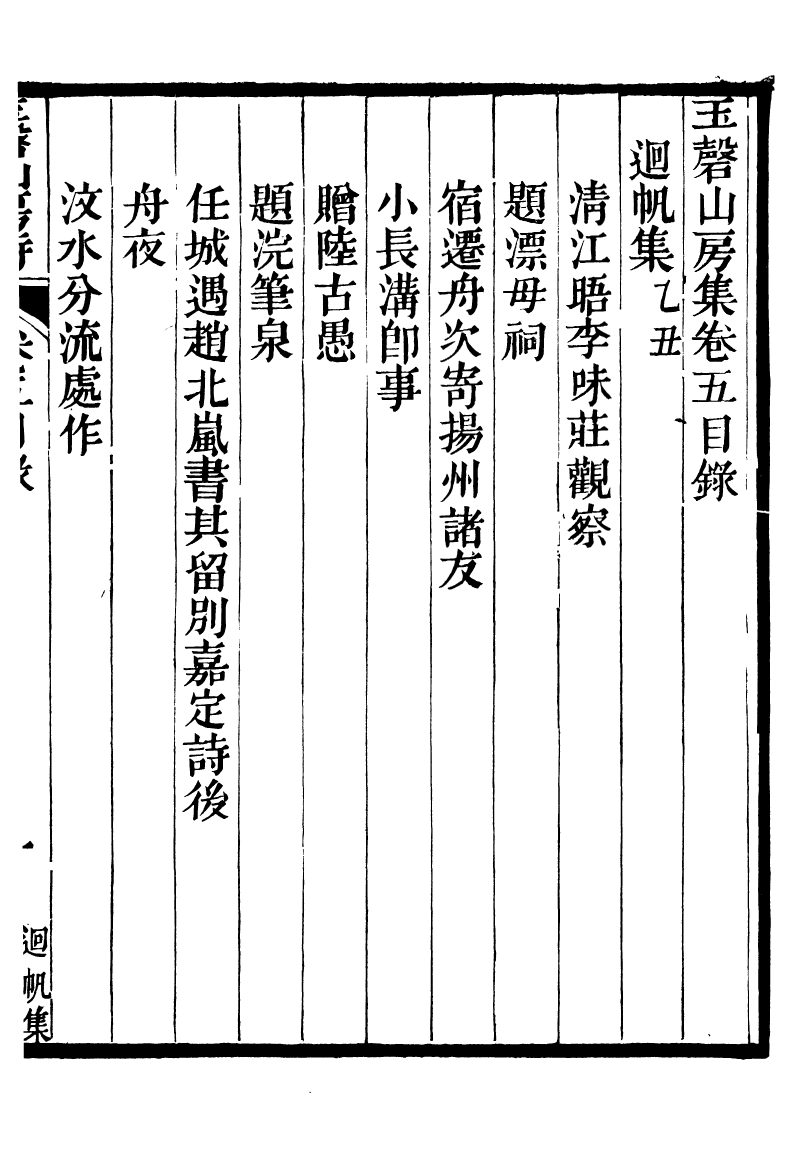 玉磬山房集卷五目錄
迴帆集乙丑
淸江晤李味莊觀察
題漂母祠
宿遷舟次寄揚州諸友
小長溝卽事
贈陸古愚
題浣筆泉
任城遇趙北嵐書其留別嘉定詩後
舟夜
汶水分流處作
一
迴帆集